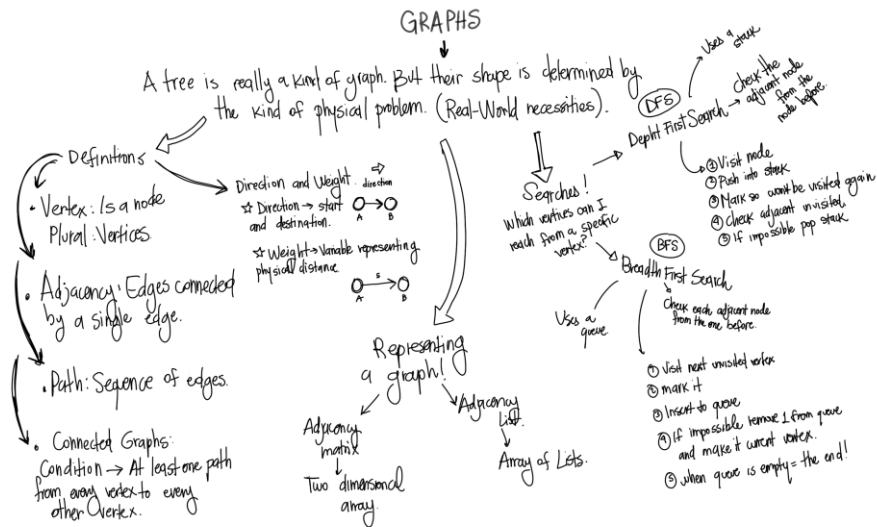 GRAPHS
A tree is really a kind of graph. But their shape is determined by
the kind of physical problem. (Real-World necessities).
Definitions
• Vertex: Is a node
Plural: Vertices.
• Adjacency: Edges connected
by a single edge.
• Path: Sequence of edges.
• Connected Graphs:
Condition → At least one path
from every vertex to every
other vertex.
Direction and Weight.
direction
☆ Direction → start
and destination.
A B
☆ Weight → Variable representing
physical distance
5
A B
Representing
a graph!
Adjacency
matrix
Two dimensional
array.
Adjacency
List.
Array of Lists.
Searches!
Which vertives can I
reach from a specific
vertex?
DFS
Depht First Search
Uses a
stack
→ check the
adjacent node
from the
node before.
① Visit node
② Push into stack
③ Mark so wont be visited again
④ Check adjacent unvisited
⑤ If impossible pop stack
BFS
Breadth First Search
Uses a
queue.
Check each adjacent node
from the one before.
① Visit next unvisited vertex
② mark it
③ Insert to queue
④ If impossible remove 1 from queue
and make it current vertex.
⑤ when queue is empty = the end!